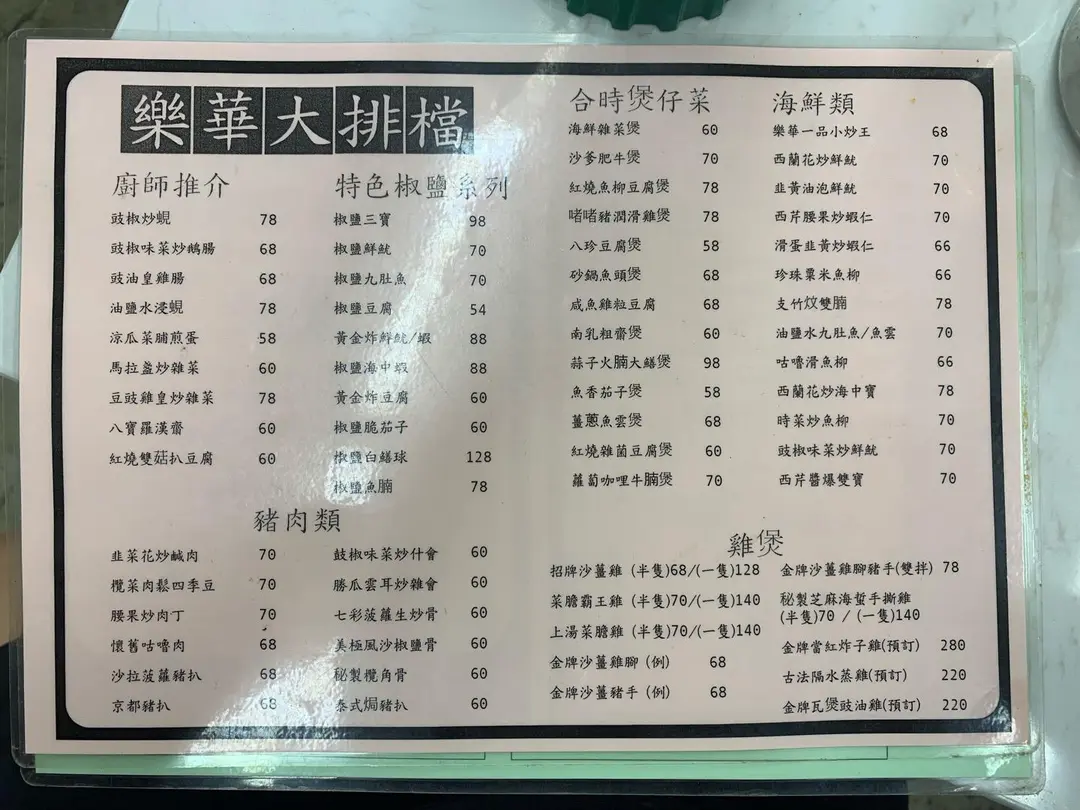 樂華大排檔
廚師推介
豉椒炒蜆 78
豉椒味菜炒鵝腸 68
豉油皇雞腸 68
油鹽水浸蜆 78
涼瓜菜脯煎蛋 58
馬拉盞炒雜菜 60
豆豉雞皇炒雜菜 78
八寶羅漢齋 60
紅燒雙菇扒豆腐 60
特色椒鹽系列
椒鹽三寶 98
椒鹽鮮魷 70
椒鹽九肚魚 70
椒鹽豆腐 54
黃金炸鮮魷/蝦 88
椒鹽海中蝦 88
黃金炸豆腐 60
椒鹽脆茄子 60
椒鹽白鱔球 128
椒鹽魚腩 78
豬肉類
韭菜花炒鹹肉 70
欖菜肉鬆四季豆 70
腰果炒肉丁 70
懷舊咕嚕肉 68
沙拉菠蘿豬扒 68
京都豬扒 68
鼓椒味菜炒什會 60
勝瓜雲耳炒雜會 60
七彩菠蘿生炒骨 60
美極風沙椒鹽骨 60
秘製欖角骨 60
泰式焗豬扒 60
合時煲仔菜
海鮮雜菜煲 60
沙爹肥牛煲 70
紅燒魚柳豆腐煲 78
啫啫豬潤滑雞煲 78
八珍豆腐煲 58
砂鍋魚頭煲 68
咸魚雞粒豆腐 68
南乳粗齋煲 60
蒜子火腩大鱔煲 98
魚香茄子煲 58
薑蔥魚雲煲 68
紅燒雜菌豆腐煲 60
蘿蔔咖哩牛腩煲 70
海鮮類
樂華一品小炒王 68
西蘭花炒鮮魷 70
韭黃油泡鮮魷 70
西芹腰果炒蝦仁 70
滑蛋韭黃炒蝦仁 66
珍珠粟米魚柳 66
支竹炆雙腩 78
油鹽水九肚魚/魚雲 70
咕嚕滑魚柳 66
西蘭花炒海中寶 78
時菜炒魚柳 70
豉椒味菜炒鮮魷 70
西芹醬爆雙寶 70
雞煲
招牌沙薑雞 (半隻)68/(一隻)128
菜膽霸王雞 (半隻)70/(一隻)140
上湯菜膽雞 (半隻)70/(一隻)140
金牌沙薑雞腳 (例) 68
金牌沙薑豬手 (例) 68
金牌沙薑雞腳豬手(雙拌) 78
秘製芝麻海蜇手撕雞
(半隻)70 / (一隻)140
金牌當紅炸子雞(預訂) 280
古法隔水蒸雞(預訂) 220
金牌瓦煲豉油雞(預訂) 220